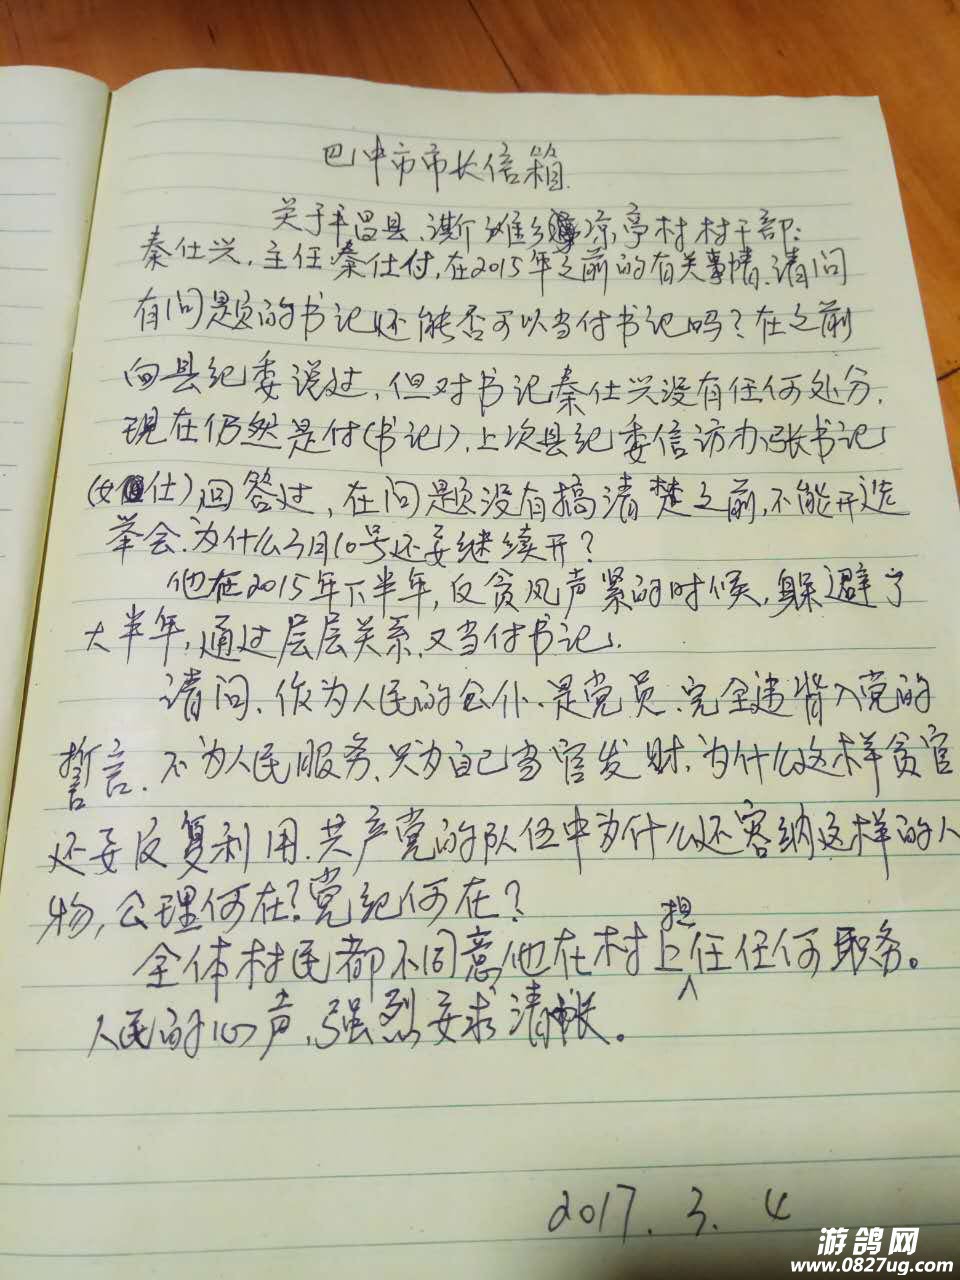 巴中市市长信箱.
关于平昌县、谌滩乡凉亭村村干部:
秦仕兴,主任秦仕付,在2015年之前的有关事情.请问
有问题的书记还能否可以当付书记吗?在之前
向县纪委说过,但对书记秦仕兴没有任何处分,
现在仍然是付(书记),上次县纪委信访办张书记
(女仕)回答过,在问题没有搞清楚之前,不能开选
举会.为什么3月10号还要继续开?
他在2015年下半年,反贪风声紧的时候,躲避了
大半年,通过层层关系.又当付书记.
请问、作为人民的公仆、是党员、完全违背入党的
誓言.不为人民服务、只为自己当官发财,为什么这样贪官
还要反复利用.共产党的队伍中为什么还容纳这样的人
物,公理何在?党纪何在?
全体村民都不同意他在村上担任任何职务。
人民的心声,强烈要求清帐。
2017.3.4
游鸽网
www.0827ug.com